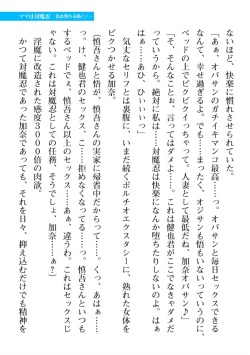 ママは対魔忍
ないほど、快楽に慣れさせられていた。
「あぁ、オバサンのガチイキマンコ最高……っ。オバサンと毎日セックスできる
なんて、幸せ過ぎるよ。でも……いまだったら、オジサンも悟もいないっていうのに、
ベッドの上でビクビクイっちゃって。人妻として最低だね、加奈オバサン♪」
「そ、そんなこと。言ってはダメよ……。これは健也君がここでなきゃダメだ
っていうから。絶対に私は……対魔忍は堕ちたりしないのだから。はぁ、
はぁ、あひ、ひいい……」
気丈なセリフとは裏腹に、いまだ続くポルチオエクスタシーに、熟れた女体を
ビクつかせる加奈。
（慎吾さんと悟が、慎吾さんの実家に帰省中だからって……。くっ、あはぁ……
っっけ、健也君のセックス、こ……拒めなくなってる……っ。慎吾さんといつも
するベッドでぇ、慎吾さん以上のセックスを……。あぁ　違うわ。これはセックスじ
ゃない。これは対魔忍としての任務。そうでしょ、加奈……？）
淫魔に改造された感度３０００倍の肉欲。
かつて対魔忍であった加奈であっても、それを日々、抑え込むだけでも精神を